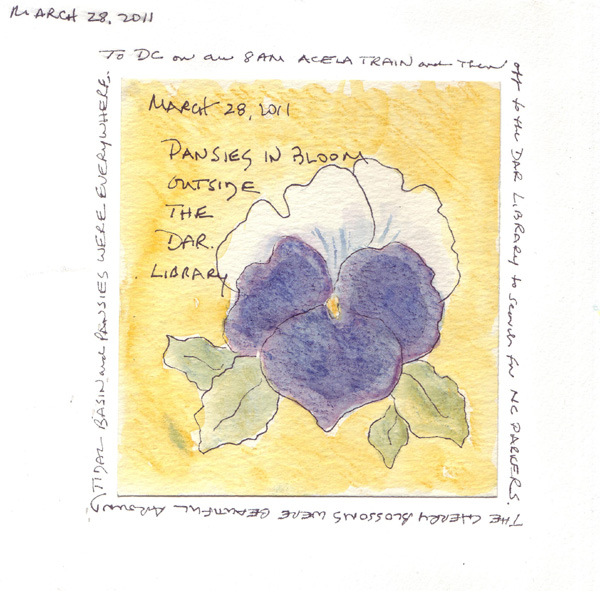 MARCH 28, 2011
TO DC on an 8AM ACELA TRAIN and then
off to the DAR LIBRARY to search for NC PARKERS.
THE CHERRY BLOSSOMS WERE BEAUTIFUL Around
TIDAL BASIN and PANSIES WERE EVERYWHERE.
MARCH 28, 2011
PANSIES IN BLOOM
OUTSIDE
THE
DAR.
LIBRARY